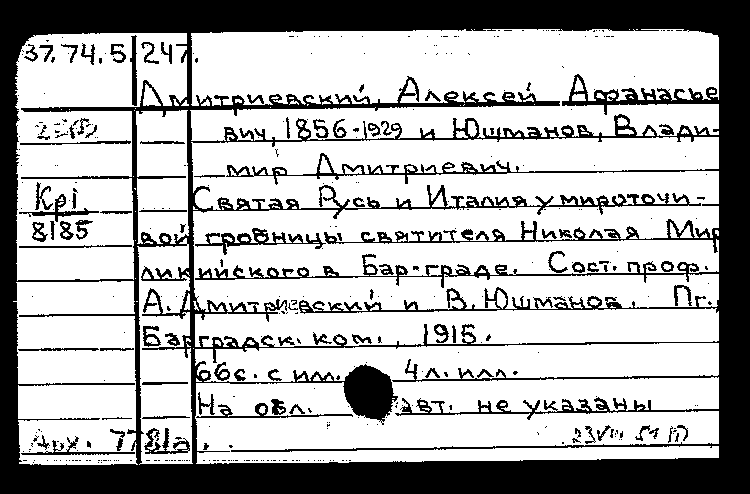 37.74.5.247.
Дмитриевский, Алексей Афанасье
вич, 1856-1929 и Юшманов, Влади-
мир Дмитриевич.
Kpi Святая Русь и Италия у мироточи-
8185 вой гробницы святителя Николая Мир
ликийского в Бар-граде. Сост. проф.
А. Дмитриевский и В. Юшманов. Пг.,
Барградск. ком., 1915.
66 с. с илл. 4 л. илл.
На обл. авт. не указаны
Арх. 7781а.